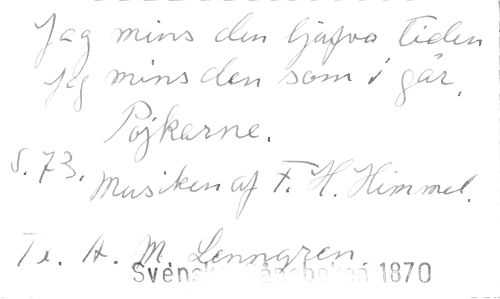 Jag mins den ljufva tiden
Jag mins den som i går.
Pojkarne.
S. 73.
Musiken af F. H. Himmel.
Te. A. M. Lenngren
Svenska Sångboken 1870